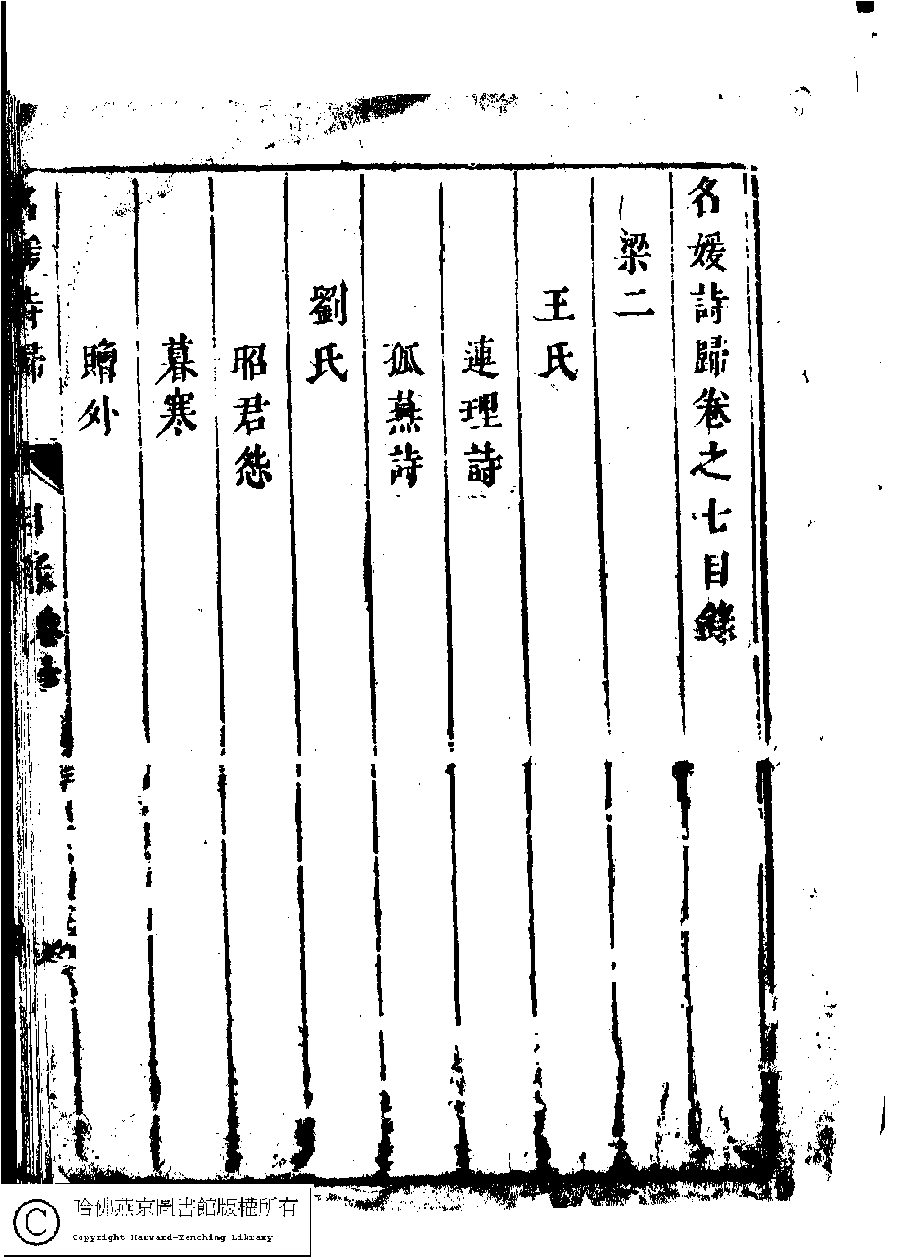 名媛詩歸卷之七目錄
梁二
王氏
連理詩
孤燕詩
劉氏
昭君怨
暮寒
贈外
名媛詩歸
哈佛燕京圖書館版權所有
Copyright Harvard-Yenching Library